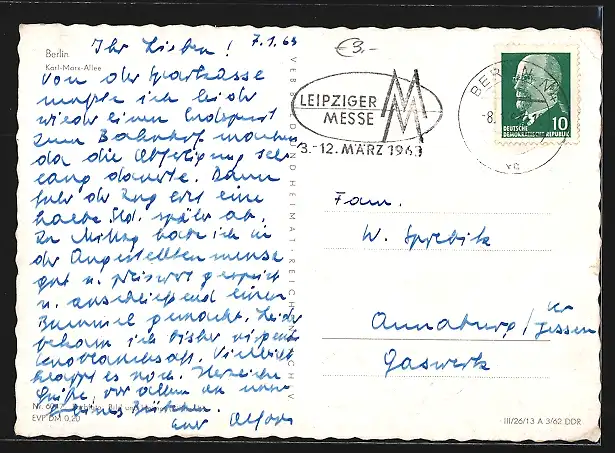 Berlin
Karl-Marx-Allee
Ihr Lieben! 7.1.63
Von der Sparkasse
mußte ich leider
wieder einen Endspurt
zum Bahnhof machen
da die Abfertigung sehr
lang dauerte. Dann
fuhr der Zug erst eine
halbe Std. später ab.
Zu Mittag habe ich in
der Angestelltenmensa
gut u. preiswert gespeist
u. anschließend einen
Bummel gemacht. Leider
bekam ich bisher nirgends
Knoblauchsaft. Vielleicht
klappt es noch. Herzliche
Grüße, vor allem an unser
Euer
EVP DM 0,20
VERLAG HEIMAT REICHENBACH V
€3.-
LEIPZIGER
MESSE
MM
3.-12. MÄRZ 1963
BERLIN
-8.
DEUTSCHE
DEMOKRATISCHE REPUBLIK
10
Fam.
W. Spredik
Annaburg / Kr Jessen
Gaswerk
III/26/13 A 3/62 DDR